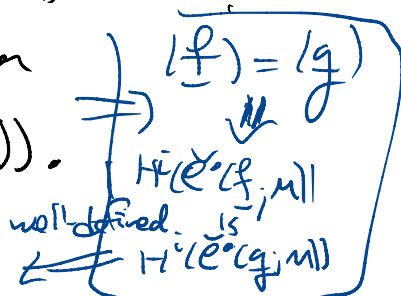 n
⇒ (f) = (g)
⇓
)). Hⁱ(Č•(f; M))
well-defined. ≅
⇐ Hⁱ(Č•(g; M))